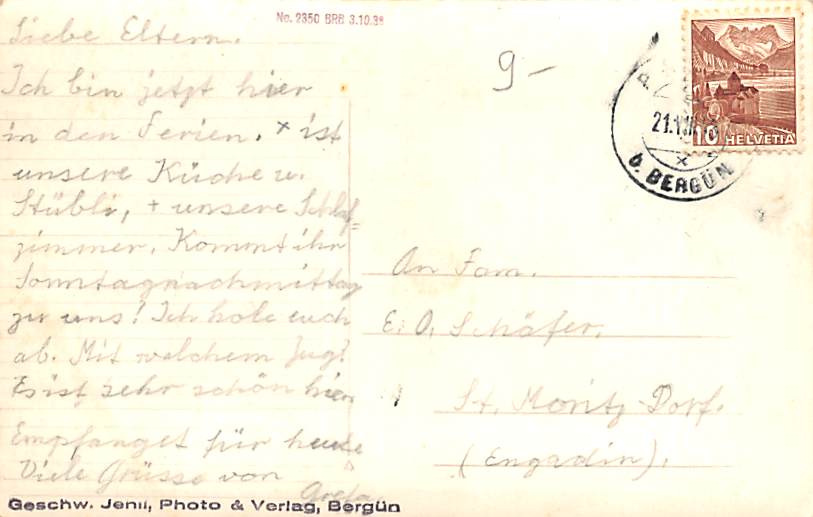 No. 2350 BRB 3.10.38
Liebe Eltern.
Ich bin jetzt hier
in den Ferien. × ist
unsere Küche u.
Stübli, + unsere Schlaf=
zimmer. Kommt ihr
Sonntagnachmittag
zu uns! Ich hole euch
ab. Mit welchem Zug?
Es ist sehr schön hier
Empfanget für heute
Viele Grüsse von
Greta
9-
10 HELVETIA
b. BERGÜN
An Fam.
E. O. Schäfer.
St. Moritz-Dorf.
(Engadin).
Geschw. Jenil, Photo & Verlag, Bergün